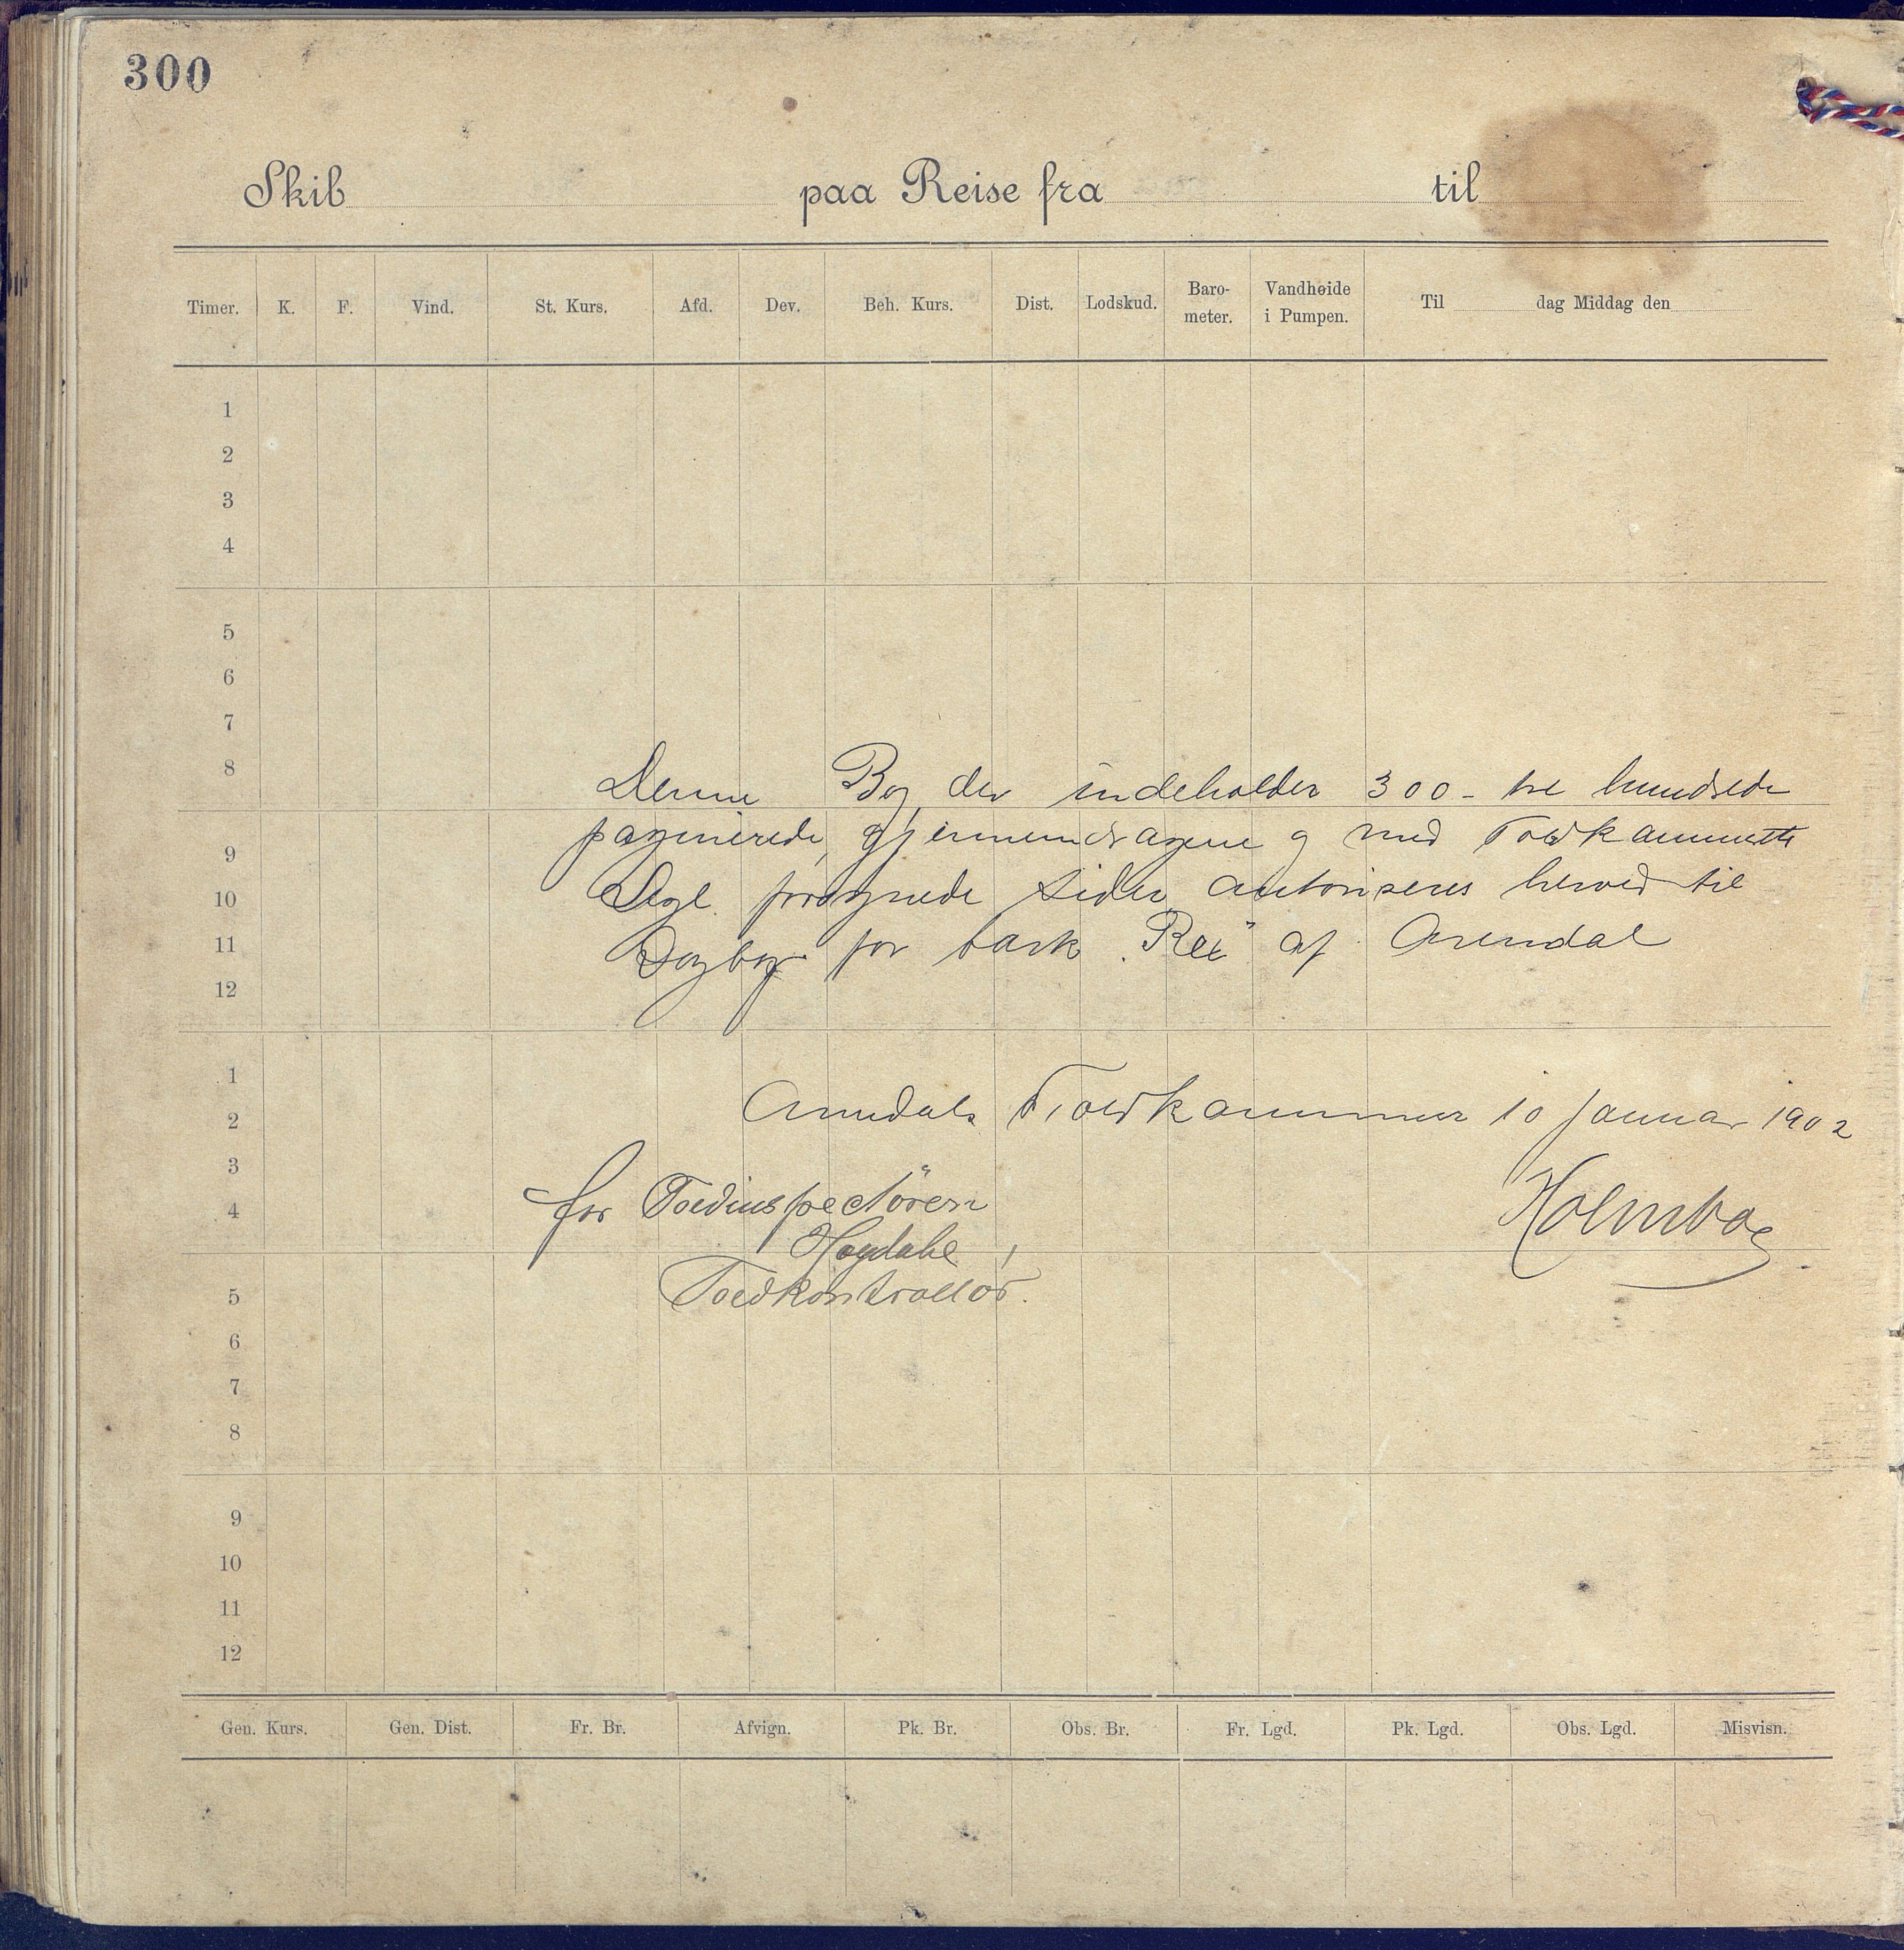 300
Skib paa Reise fra til
Timer. K. F. Vind. St. Kurs. Afd. Dev. Beh. Kurs. Dist. Lodskud. Baro-meter. Vandhøide i Pumpen. Til dag Middag den
1
2
3
4
5
6
7
8
Denne Bog, der indeholder 300 - tre hundrede
9
paginerede, gjennemdragne og med Toldkammerets
10
Segl forsynede Sider, autoriseres herved til
11
Dagbog for bark "Rex" af Arendal
12
1
Arendals Toldkammer 10 Januar 1902
2
3
4
for Toldinspectören
Holmboe
Høydahl,
5
Toldkontrollør.
6
7
8
9
10
11
12
Gen. Kurs. Gen. Dist. Fr. Br. Afvign. Pk. Br. Obs. Br. Fr. Lgd. Pk. Lgd. Obs. Lgd. Misvisn.